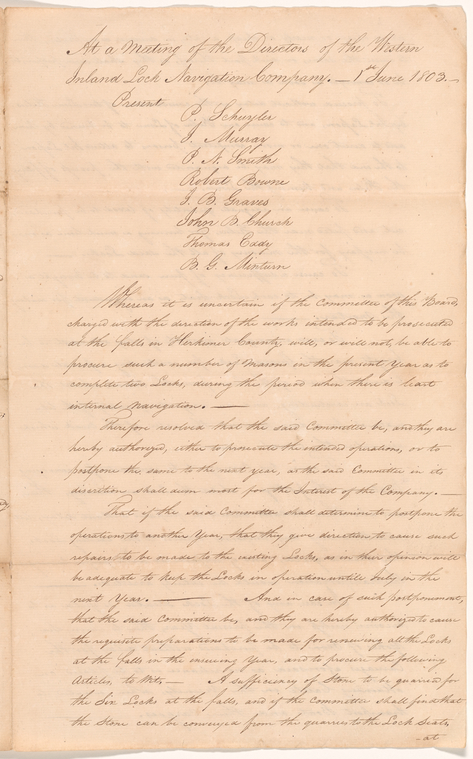 At a Meeting of the Directors of the Western
Inland Lock Navigation Company. — 1st June 1803. —
Present
P. Schuyler
J. Murray
P. N. Smith
Robert Bowne
J. B. Graves
John B. Church
Thomas Eddy
B. G. Minturn
Whereas it is uncertain if the Committee of this Board,
charged with the direction of the works intended to be prosecuted
at the falls in Herkimer County, will, or will not, be able to
procure such a number of Masons in the present Year as to
complete two Locks, during the period when there is least
internal Navigation. —
Therefore resolved that the said Committee be, and they are
hereby authorized, either to prosecute the intended operations, or to
postpone the same to the next year, as the said Committee in its
discretion shall deem most for the Interest of the Company. —
That if the said Committee shall determine to postpone the
operations to another Year, that they give direction to cause such
repairs to be made to the existing Locks, as in their opinion will
be adequate to keep the Locks in operation untill July in the
next Year. — And in case of such postponement,
that the said Committee be, and they are hereby authorized to cause
the requisite preparations to be made for renewing all the Locks
at the falls in the ensuing Year, and to procure the following
Articles, to Wit, — A sufficiency of Stone to be quarried for
the Six Locks at the falls, and if the Committee shall find that
the Stone can be conveyed from the quarries to the Lock Seats,
at